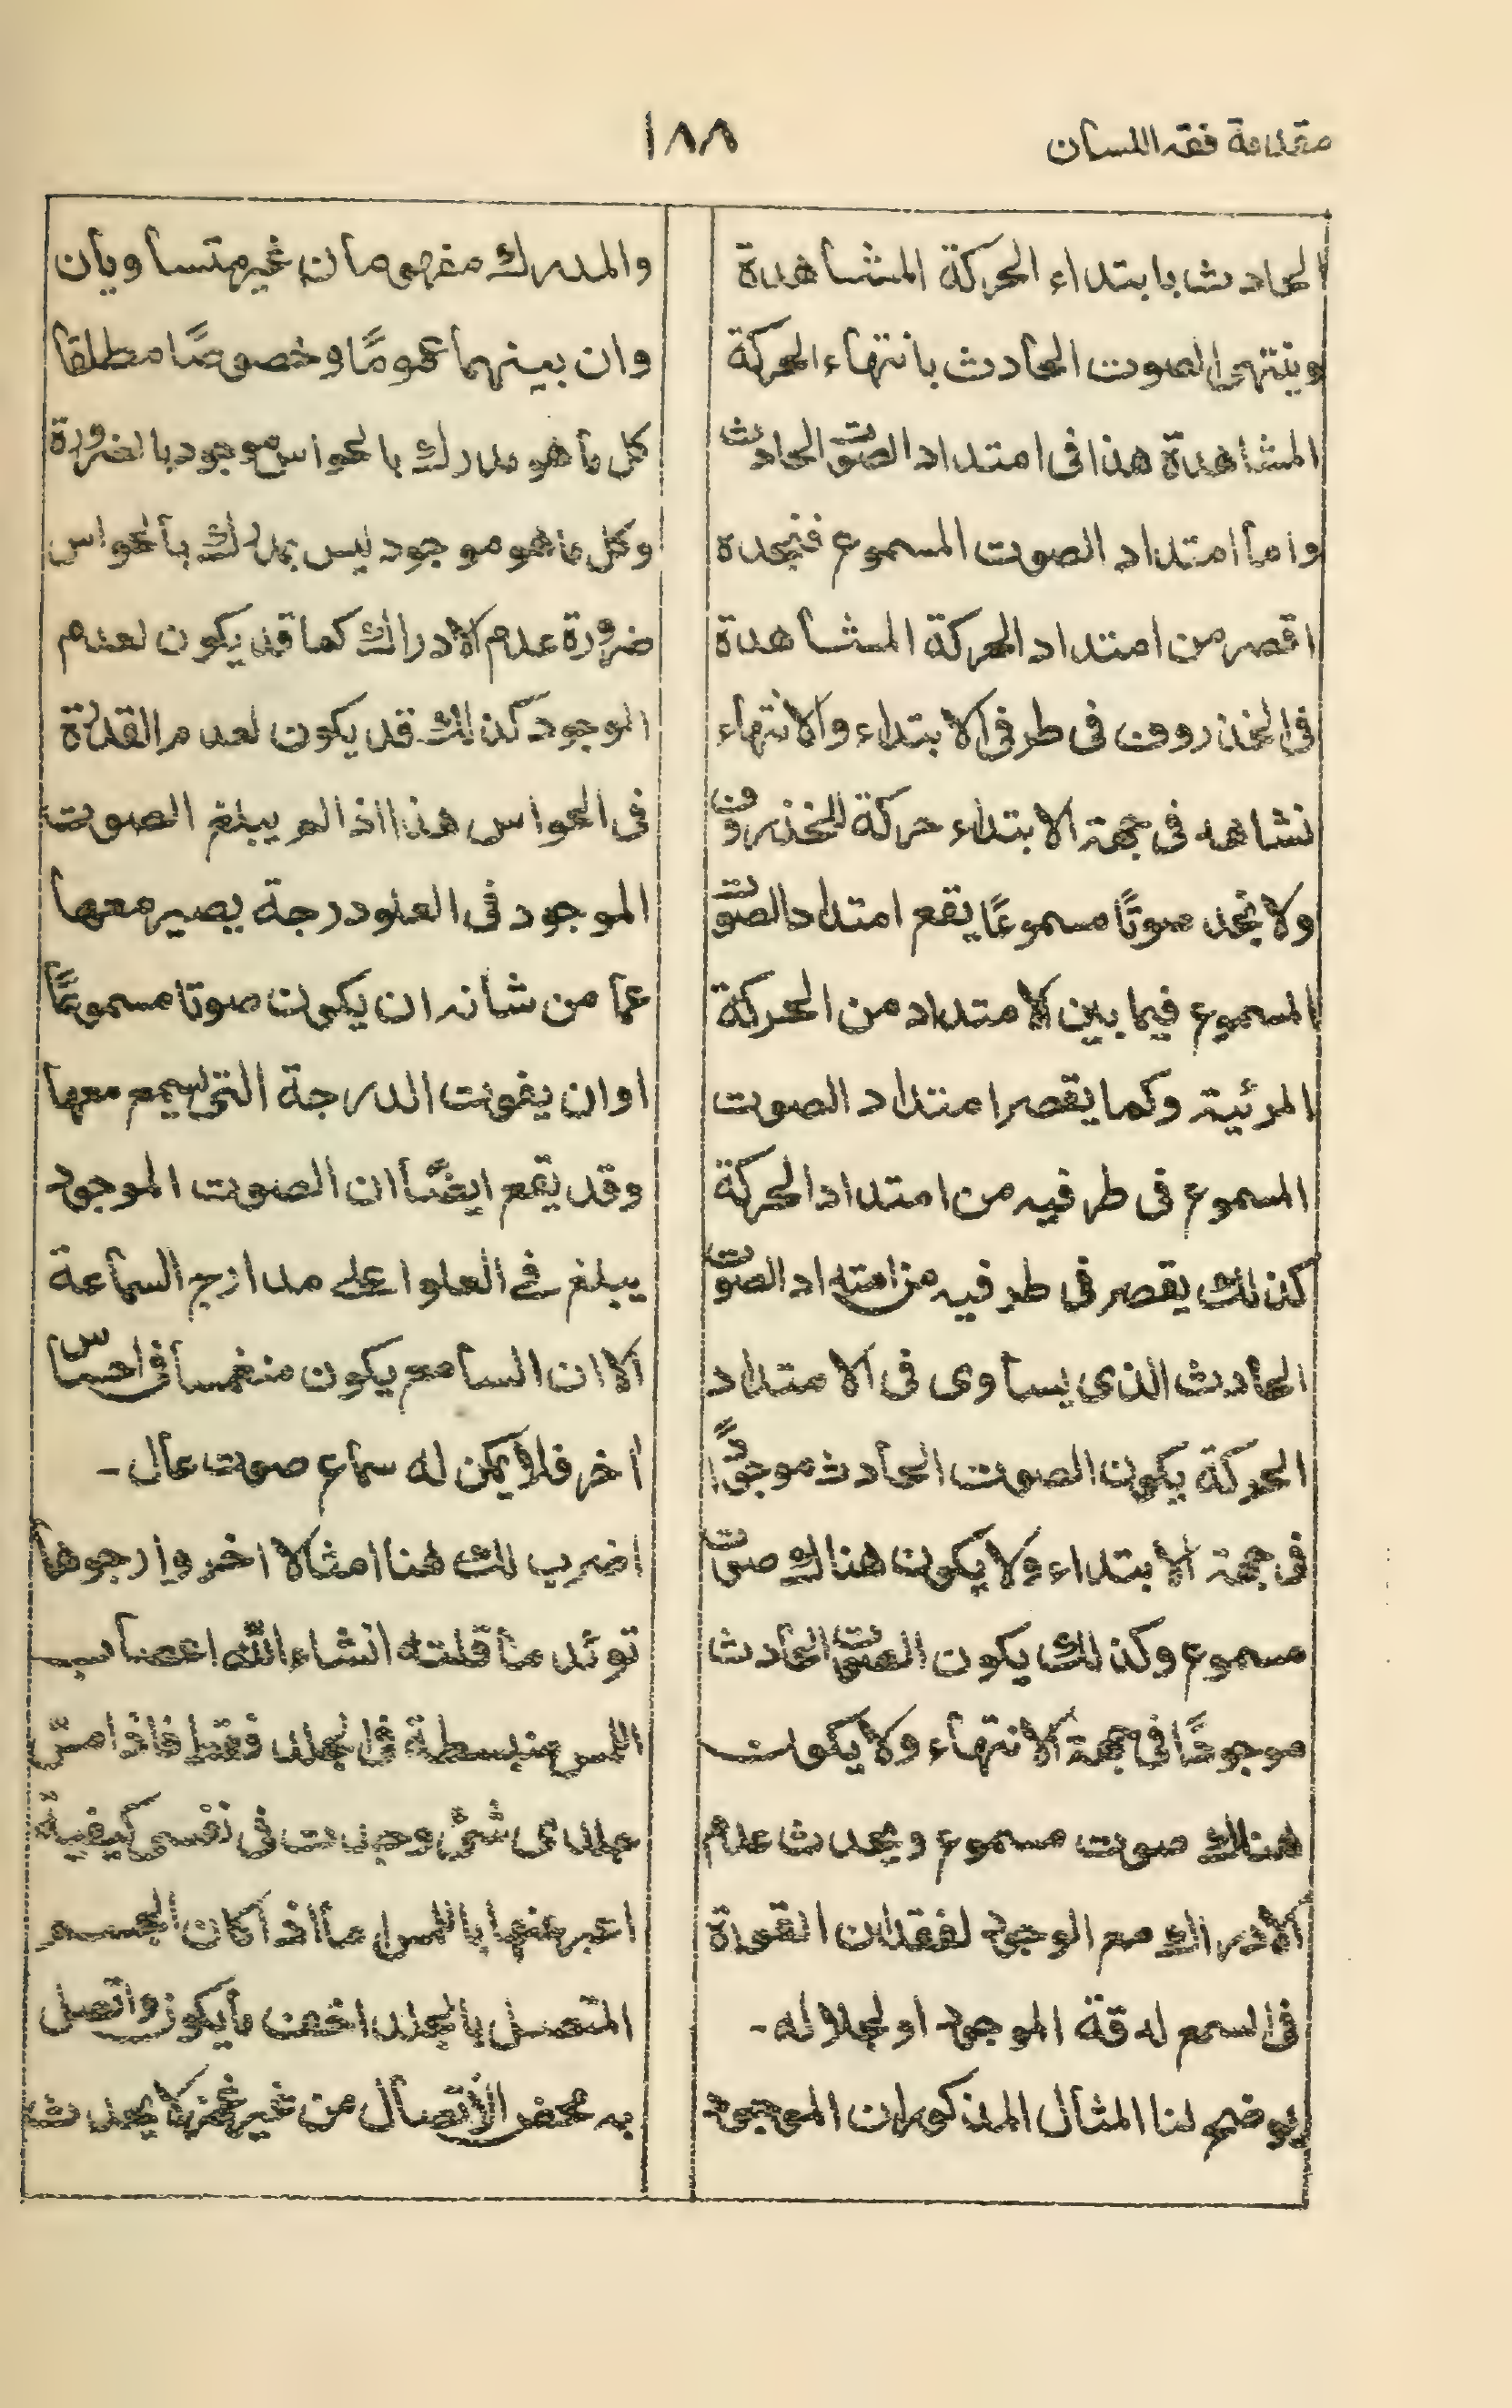 مقدمة فقه اللسان
١٨٨
الحادث بابتداء الحركة المشاهدة
وينتهى الصوت الحادث بانتهاء الحركة
المشاهدة هذا فى امتداد الصوت الحادث
واما امتداد الصوت المسموع فنجده
اقصر من امتداد الحركة المشاهدة
فى الخذروف فى طرفى الابتداء والانتهاء
نشاهد فى جهة الابتداء حركة للخذروف
ولا نجد صوتًا مسموعًا يقع امتداد الصوت
المسموع فيما بين الامتداد من الحركة
المرئية وكما يقصر امتداد الصوت
المسموع فى طرفيه من امتداد الحركة
كذلك يقصر فى طرفيه من امتداد الصوت
الحادث الذى يساوى فى الامتداد
الحركة يكون الصوت الحادث موجودًا
فى جهة الابتداء ولا يكون هناك صوت
مسموع وكذلك يكون الصوت الحادث
موجودًا فى جهة الانتهاء ولا يكون
هناك صوت مسموع ويحدث عدم
الادراك مع الوجود لفقدان القوة
فى السمع لدقة الموجود او لجلاله -
يوضح لنا المثال المذكور ان الموجود
والمدرك مفهومان غير متساويان
وان بينهما عمومًا وخصوصًا مطلقا
كل ما هو مدرك بالحواس موجود بالضرورة
وكل ما هو موجود ليس بمدرك بالحواس
ضرورة عدم الادراك كما قد يكون لعدم
الموجود كذلك قد يكون لعدم القدرة
فى الحواس هذا اذا لم يبلغ الصوت
الموجود فى العلو درجة يصير معها
عما من شانه ان يكون صوتا مسموعًا
او ان يفوت الدرجة التى يسمع معها
وقد يقع ايضًا ان الصوت الموجود
يبلغ فى العلو اعلى مدارج السماعة
الا ان السامع يكون منغمسا فى احساس
اخر فلا يمكن له سماع صوت عال -
اضرب لك هنا امثالا اخر وارجوها
توئد ما قلته انشاء الله اعصاب
اللمس منبسطة فى الجلد فقط فاذا مسّ
جلدى شئ وجدت فى نفسى كيفية
اعبر عنها باللمس اما اذا كان الجسم
المتصل بالجلد اخف ما يكون واتصل
به محض الاتصال من غير غمز لا يحدث